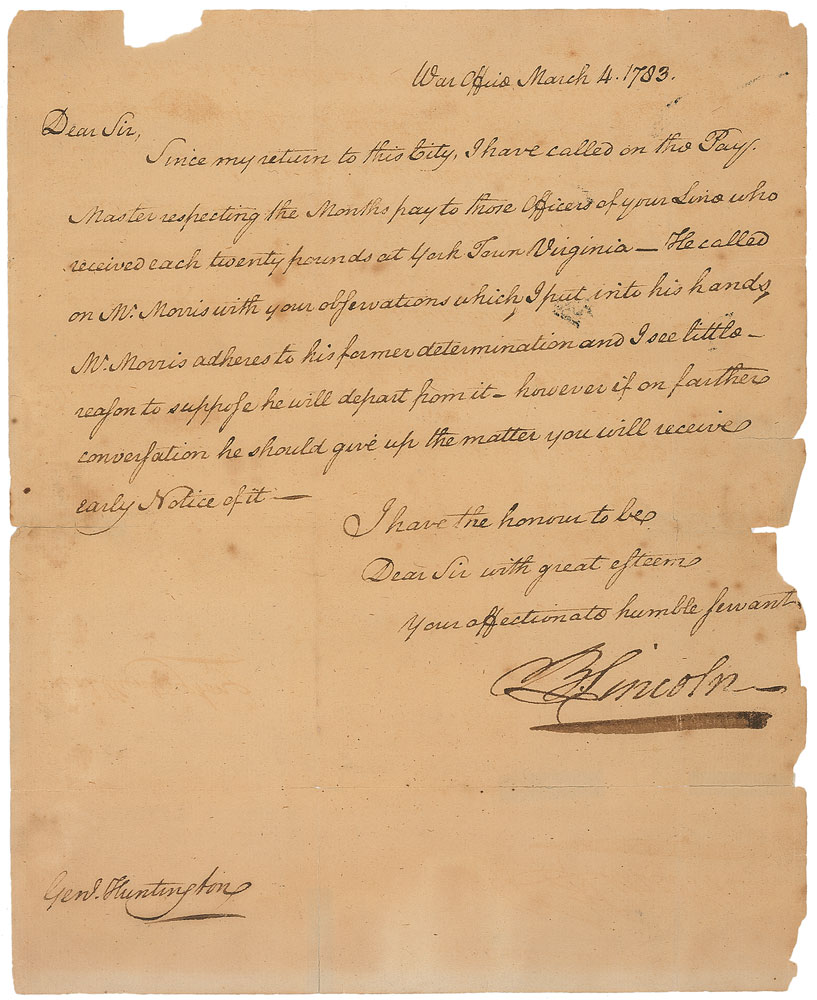 War Office March 4. 1783.
Dear Sir,
Since my return to this City, I have called on the Pay
Master respecting the Months pay to those Officers of your Line who
received each twenty pounds at York Town Virginia — He called
on Mr. Morris with your obſervations which, I put into his hands,
Mr. Morris adheres to his former determination and I see little —
reaſon to suppoſe he will depart from it — however if on farther
converſation he should give up the matter you will receive
early Notice of it —
I have the honour to be
Dear Sir with great eſteem
Your affectionate humble ſervant.
B. Lincoln
Genl. Huntington